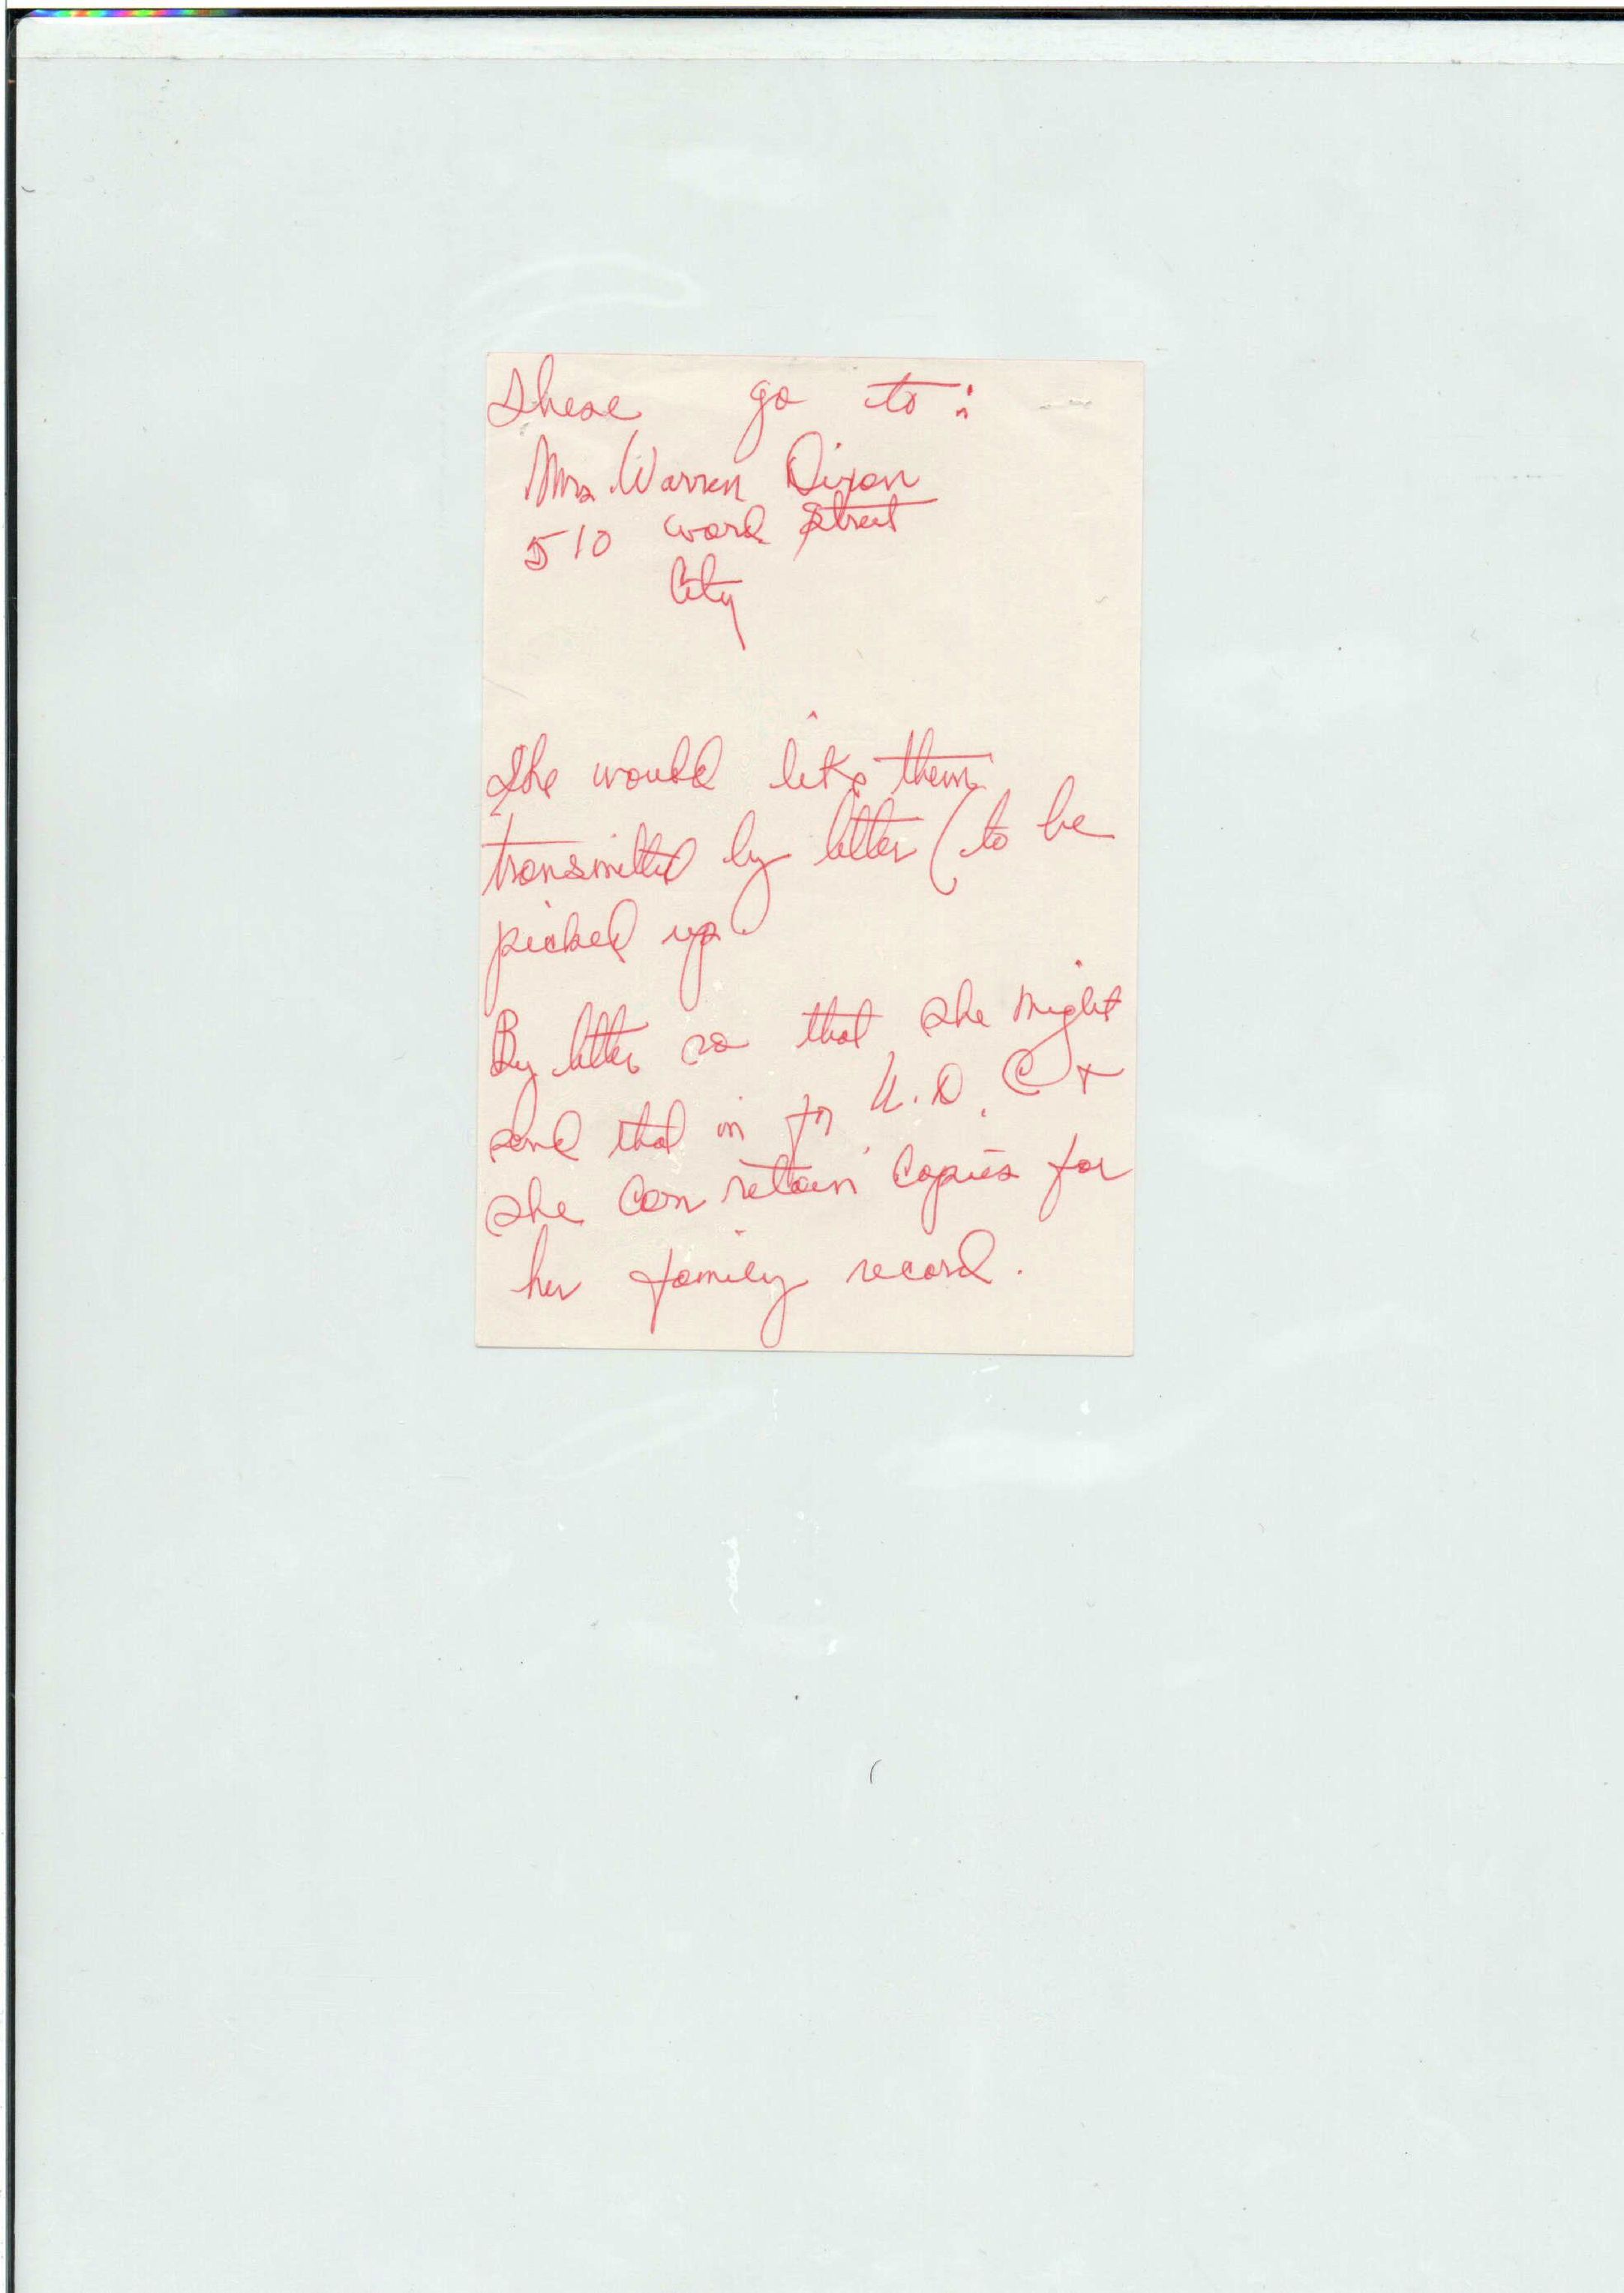 These go to:
Mrs. Warren Dixon
510 Ward Street
City
She would like them
transmitted by letter (to be
picked up)
By letter so that she might
send that in for U.D.C +
she can retain copies for
her family record.